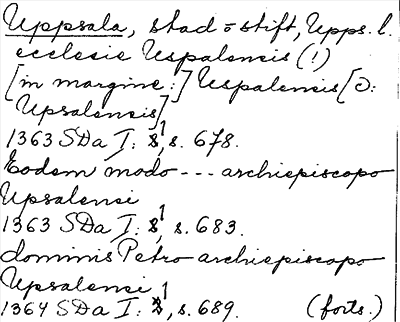 Uppsala, stad o stift, Upps. l.
ecclesie Uspalensis (!)
[in margine:] Uespalensis [ɔ:
Upsalensis]
1363 SDa I: 1, s. 678.
Eodem modo --- archiepiscopo
Upsalensi
1363 SDa I: 1, s. 683.
dominis Petro archiepiscopo
Upsalensi
1364 SDa I: 1, s. 689. (forts.)